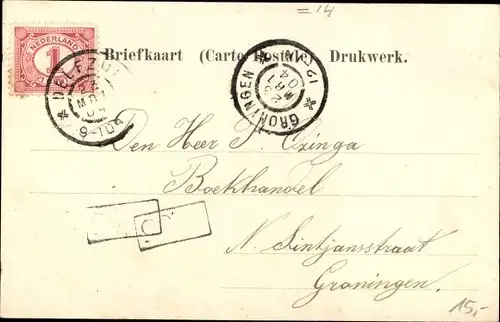 = 14
NEDERLAND
1
Briefkaart (Carte Postale) Drukwerk.
DELFZIJL
23
MRT
04
9-10V
GRONINGEN
23
MRT
04
12-1N
Den Heer P. Ozinga
Boekhandel
N. Sintjansstraat
Groningen.
15,-